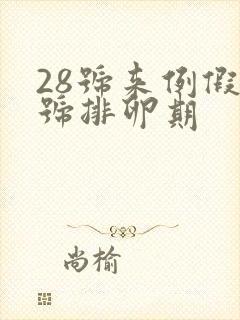 28號来例假
號排卵期
尚榆